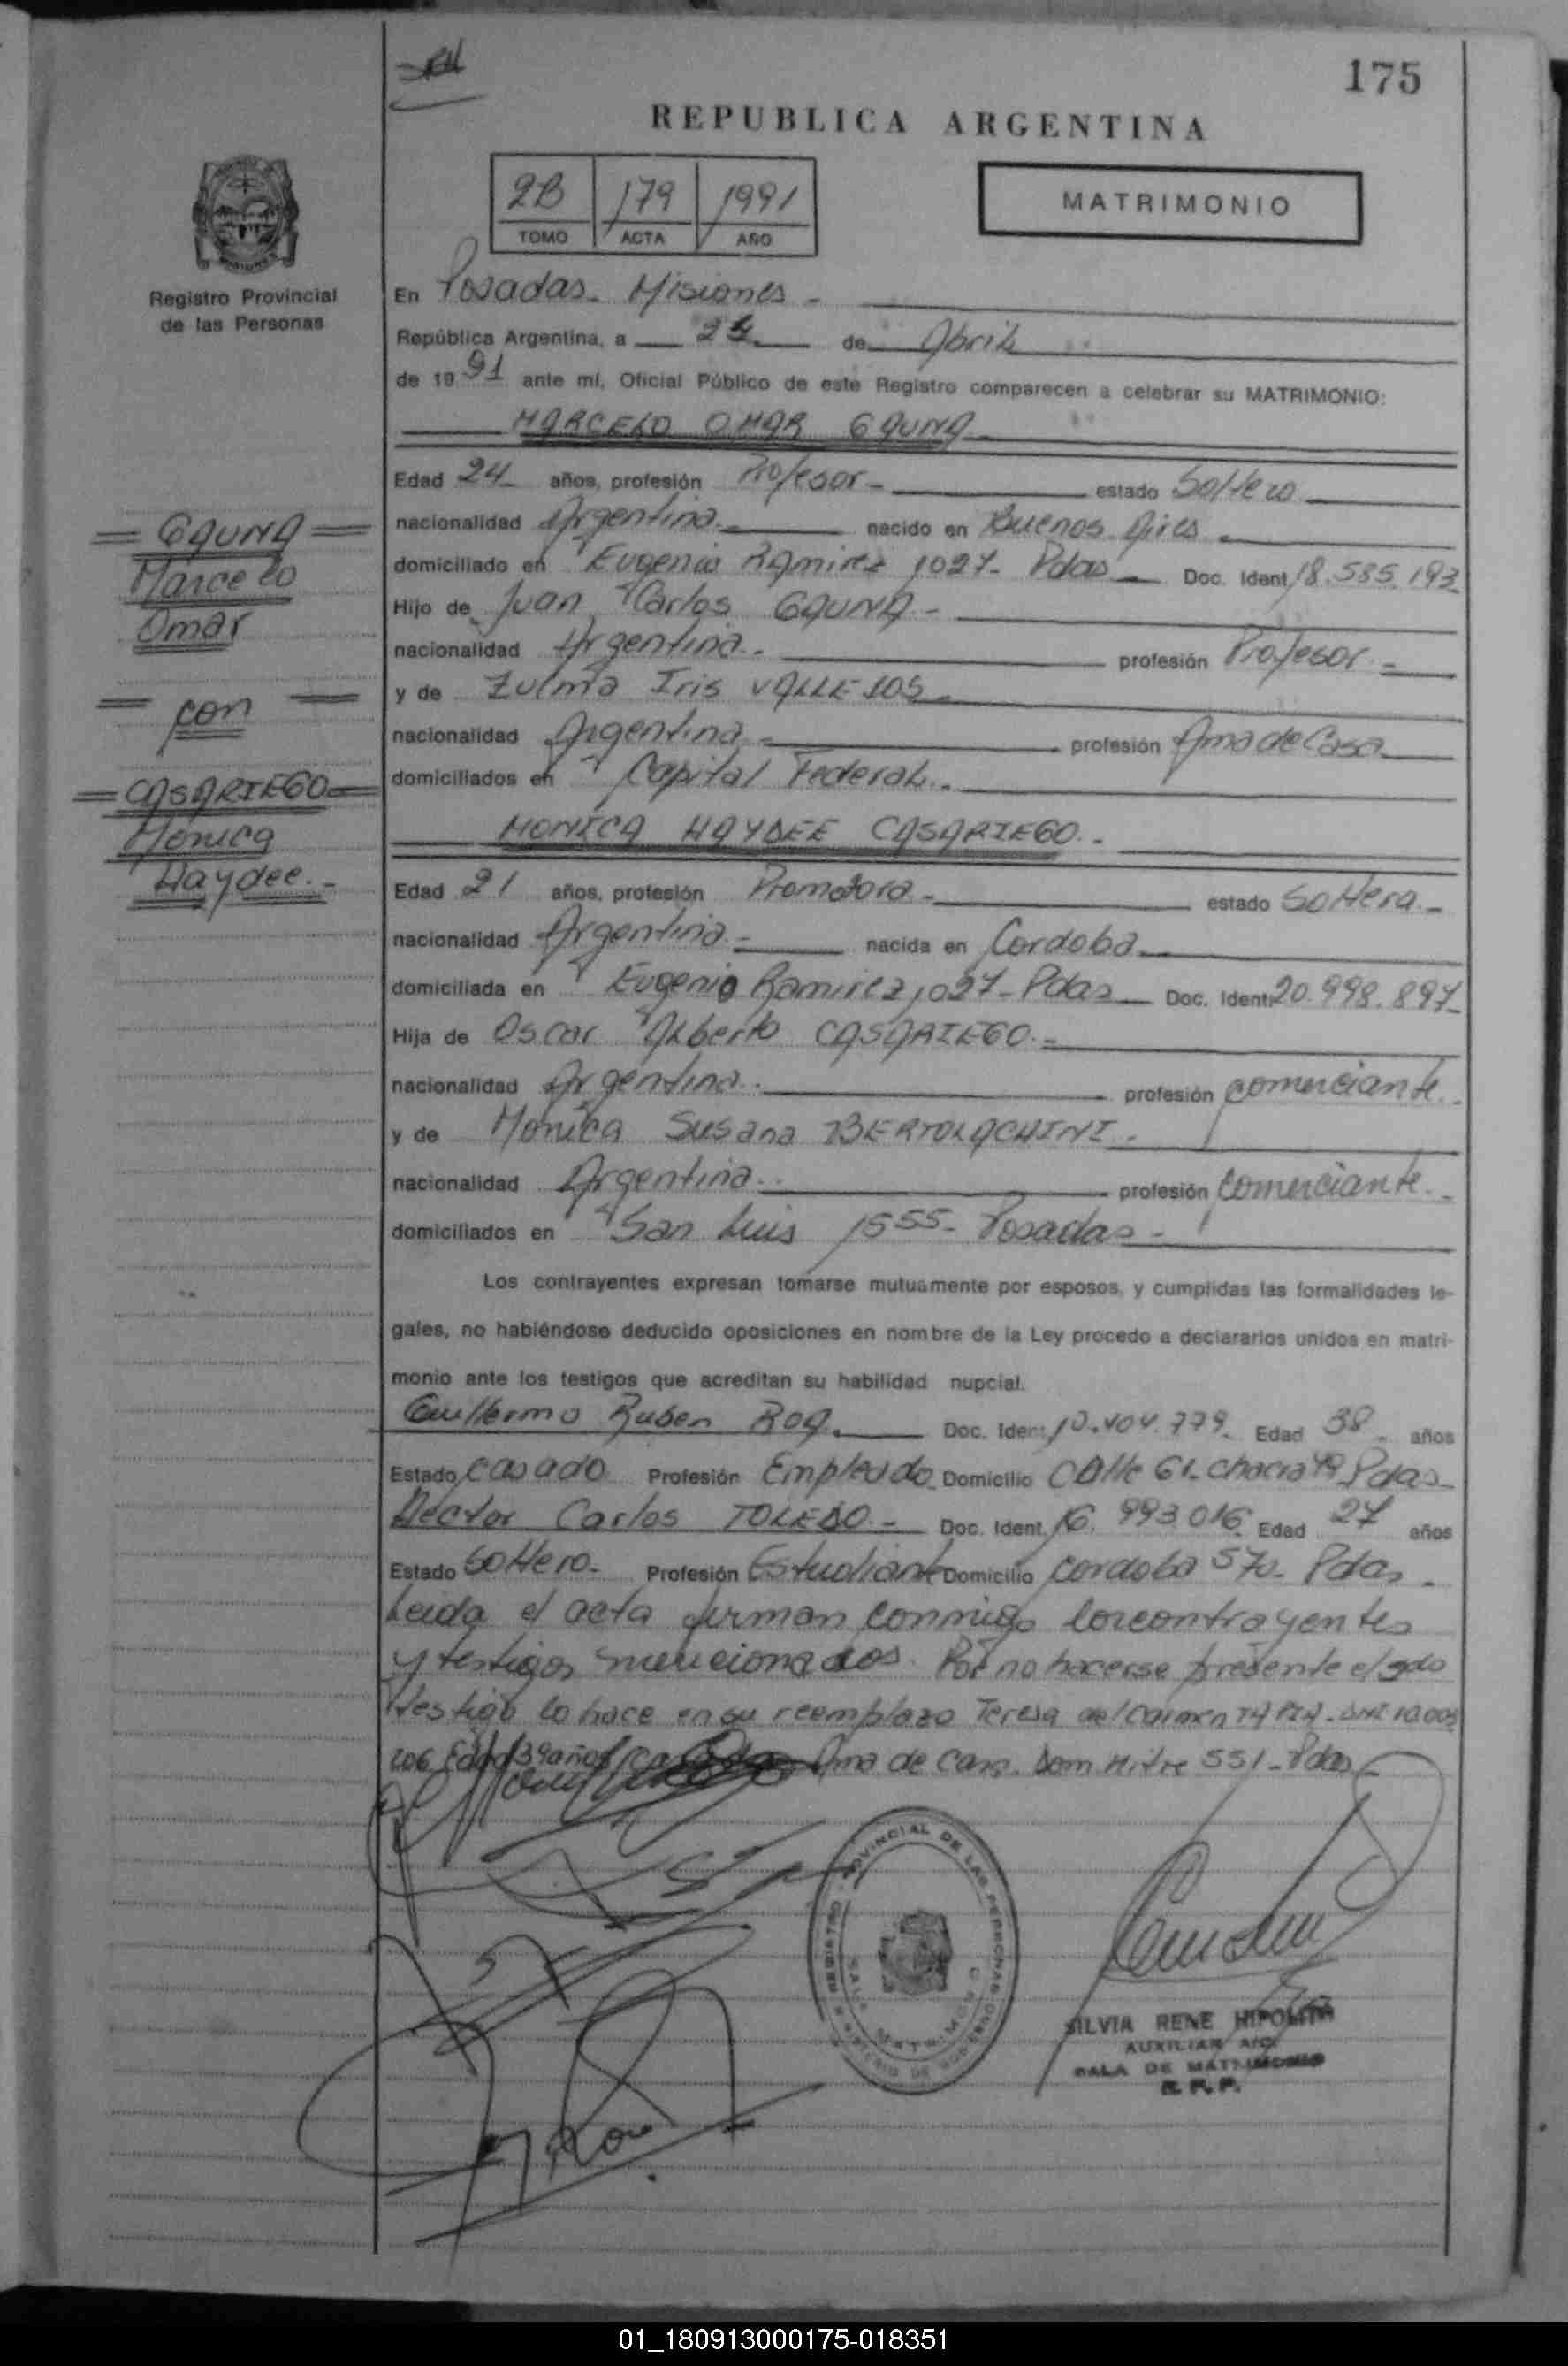 175
REPUBLICA ARGENTINA
2B 179 1991
TOMO ACTA AÑO
MATRIMONIO
Registro Provincial
de las Personas
En Posadas - Misiones -
República Argentina, a de Abril
de 19 91 ante mí, Oficial Público de este Registro comparecen a celebrar su MATRIMONIO:
MARCELO OMAR GAUNA
Edad 24 años, profesión Profesor - estado Soltero
nacionalidad Argentina - nacido en Buenos Aires -
domiciliado en Eugenio Ramirez 1027 - Pdas - Doc. Ident. 18.585.193
Hijo de Juan Carlos GAUNA -
nacionalidad Argentina - profesión Profesor -
y de Zulma Iris VALLEJOS -
nacionalidad Argentina - profesión Ama de Casa
domiciliados en Capital Federal -
MONICA HAYDEE CASARIEGO -
Edad 21 años, profesión Promotora - estado Soltera -
nacionalidad Argentina - nacida en Cordoba
domiciliada en Eugenio Ramirez 1027 - Pdas - Doc. Ident. 20.998.897
Hija de Oscar Alberto CASARIEGO -
nacionalidad Argentina - profesión comerciante -
y de Monica Susana BERTOLACHINI -
nacionalidad Argentina - profesión comerciante -
domiciliados en San Luis 1555 - Posadas -
= GAUNA =
Marcelo
Omar
= con =
= CASARIEGO =
Monica
Haydee. -
Los contrayentes expresan tomarse mutuamente por esposos, y cumplidas las formalidades le-
gales, no habiéndose deducido oposiciones en nombre de la Ley procedo a declararlos unidos en matri-
monio ante los testigos que acreditan su habilidad nupcial.
Guillermo Ruben ROA - Doc. Ident. 10.404.779 - Edad 38 - años
Estado casado Profesión Empleado Domicilio Calle 61 - chacra Pdas -
Hector Carlos TOLEDO - Doc. Ident. 16.993.016 Edad 27 años
Estado Soltero - Profesión Estudiante Domicilio cordoba 570 - Pdas -
Leida el acta firman conmigo los contrayentes
y testigos mencionados. Por no hacerse presente el 2do
testigo lo hace en su reemplazo Teresa del Carmen TAPIA - DNI 10.003
206 Edad 39 años Ama de Casa - Dom. Mitre 551 - Pdas -
REGISTRO PROVINCIAL DE LAS PERSONAS
MINISTERIO DE GOBIERNO
SALA MATRIMONIO
SILVIA RENE HIPOLITO
AUXILIAR
SALA DE MATRIMONIO
R. P. P.
01_180913000175-018351